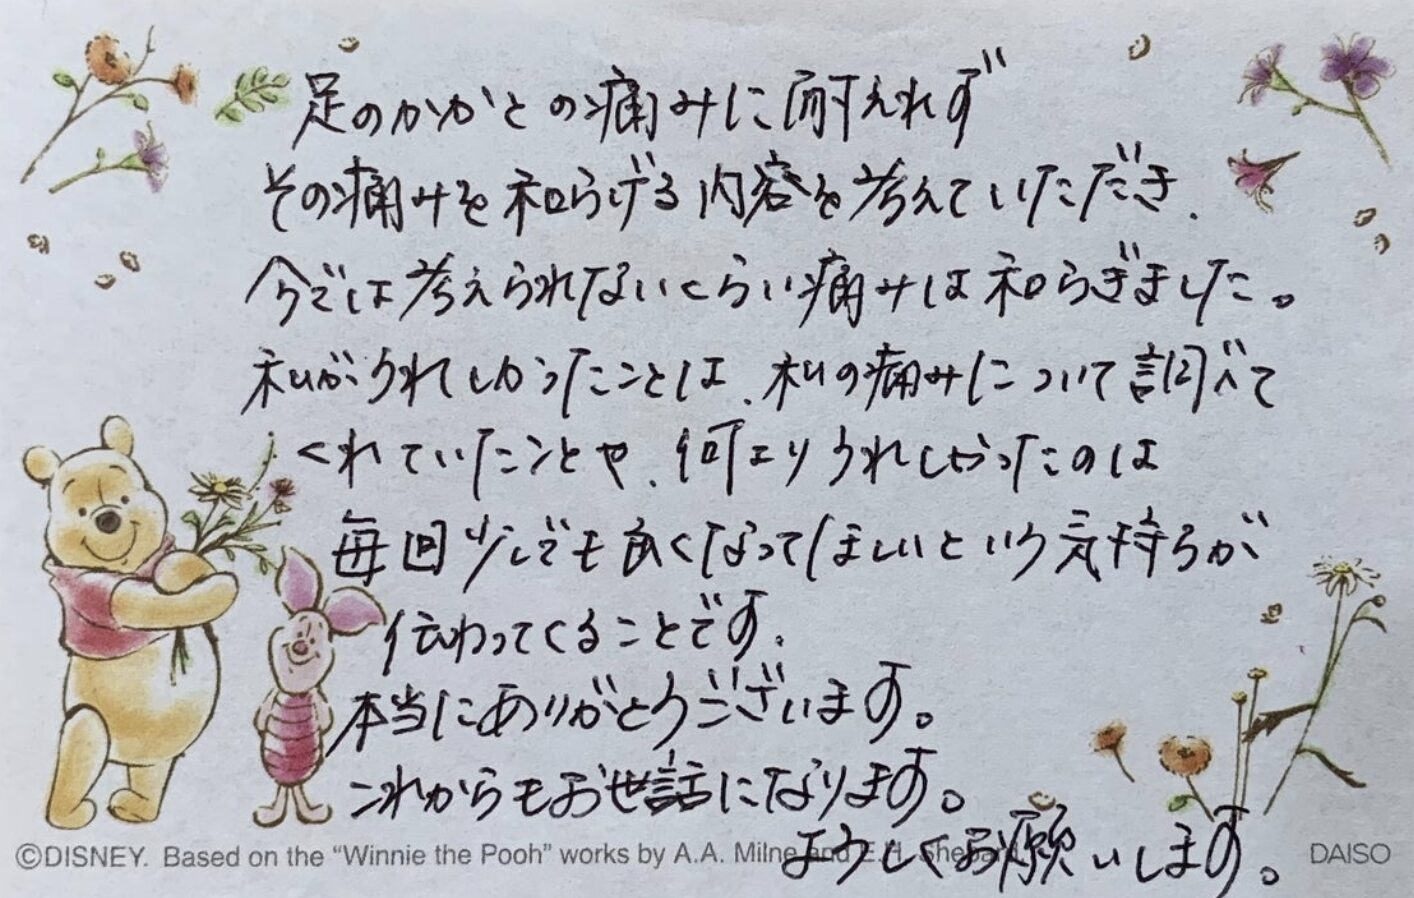 足のかかとの痛みに耐えれず
その痛みを和らげる内容を考えていただき、
今では考えられないくらい痛みは和らぎました。
私がうれしかったことは、私の痛みについて調べて
くれていたことや、何よりうれしかったのは
毎回少しでも良くなってほしいという気持ちが
伝わってくることです。
本当にありがとうございます。
これからもお世話になります。
よろしくお願いします。
©DISNEY. Based on the “Winnie the Pooh” works by A.A. Milne and E.H. Shepard
DAISO